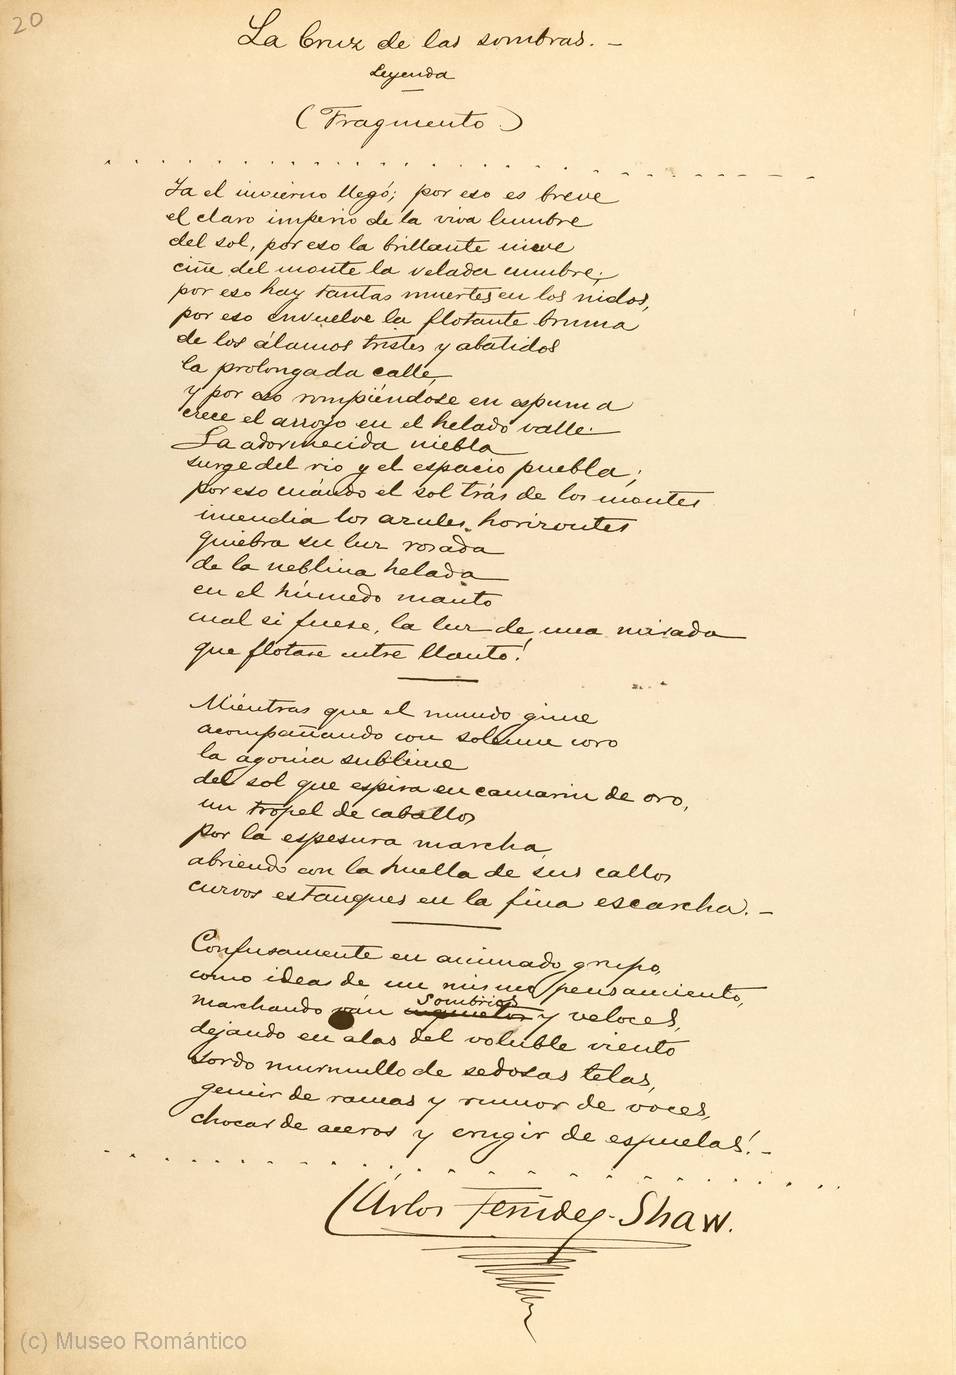 20
La Cruz de las sombras. –
Leyenda
(Fragmento)
Ya el invierno llegó; por eso es breve
el claro imperio de la viva lumbre
del sol, por eso la brillante nieve
ciñe del monte la velada cumbre;
por eso hay tantas muertes en los nidos,
por eso envuelve la flotante bruma
de los álamos tristes y abatidos
la prolongada calle,
y por eso rompiéndose en espuma
crece el arroyo en el helado valle.
La adormecida niebla
surge del rio y el espacio puebla;
por eso cuándo el sol trás de los montes
incendia los azules horizontes
quiebra su luz rosada
de la neblina helada
en el húmedo manto
cual si fuese, la luz de una mirada
que flotase entre llanto!
Mientras que el mundo gime
acompañando con solemne coro
la agonia sublime
del sol que espira en camarin de oro,
un tropel de caballos
por la espesura marcha,
abriendo con la huella de sus callos
curvos estanques en la fina escarcha. –
Confusamente en animado grupo,
como ideas de un mismo pensamiento,
sombrios
marchando ván inquietos y veloces,
dejando en alas del voluble viento
sordo murmullo de sedosas telas,
gemir de ramas y rumor de voces,
chocar de aceros y crugir de espuelas! –
Cárlos Fernndez-Shaw.
(c) Museo Romántico